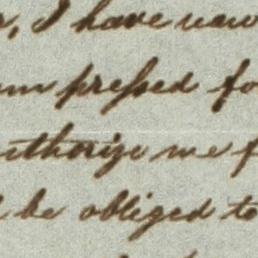 , I have
pressed fo
uthorize me f
be obliged to